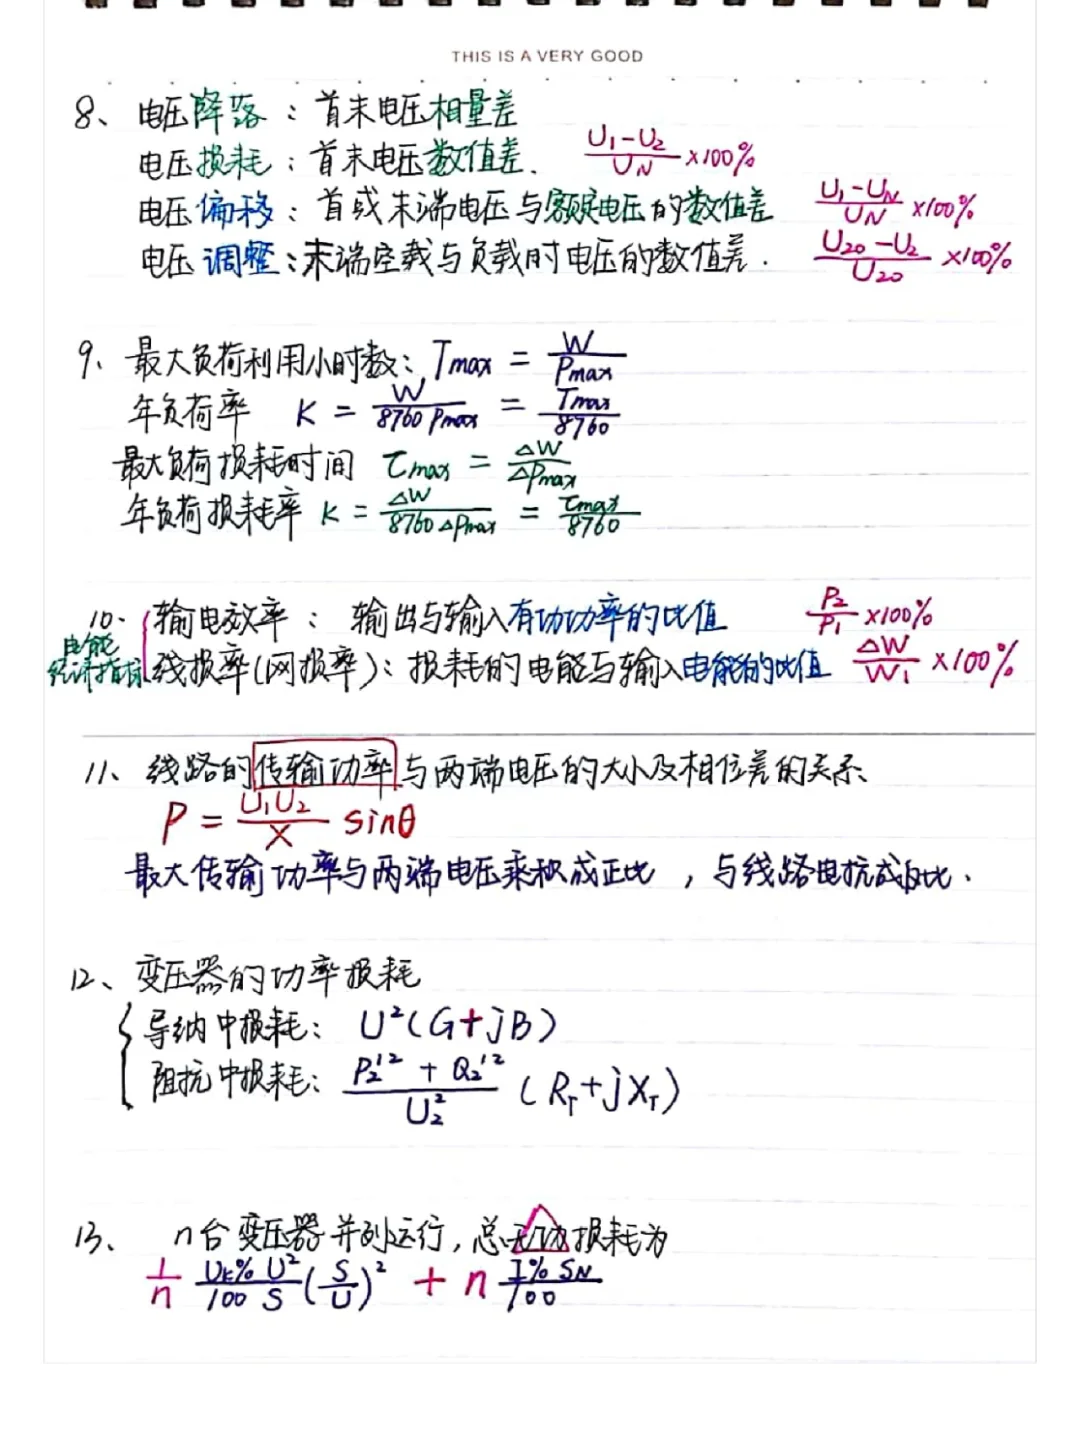 THIS IS A VERY GOOD
8、电压降落：首末电压相量差
电压损耗：首末电压数值差. (U₁-U₂)/U_N ×100%
电压偏移：首或末端电压与额定电压的数值差 (U₁-U_N)/U_N ×100%
电压调整：末端空载与负载时电压的数值差. (U₂₀-U₂)/U₂₀ ×100%
9、最大负荷利用小时数：Tmax = W/Pmax
年负荷率 K = W/(8760 Pmax) = Tmax/8760
最大负荷损耗时间 τmax = ΔW/ΔPmax
年负荷损耗率 K = ΔW/(8760 ΔPmax) = τmax/8760
10. 输电效率：输出与输入有功功率的比值 P₂/P₁ ×100%
电能经济指标 线损率(网损率)：损耗的电能与输入电能的比值 ΔW/W₁ ×100%
11、线路的传输功率与两端电压的大小及相位差的关系
P = (U₁U₂)/X sinθ
最大传输功率与两端电压乘积成正比，与线路电抗成反比.
12、变压器的功率损耗
导纳中损耗：U²(G+jB)
阻抗中损耗：(P₂'²+Q₂'²)/U₂² (R_T+jX_T)
13、n台变压器并列运行，总无功损耗为
1/n (U_k% U²)/(100 S) (S/U)² + n (I% S_N)/100